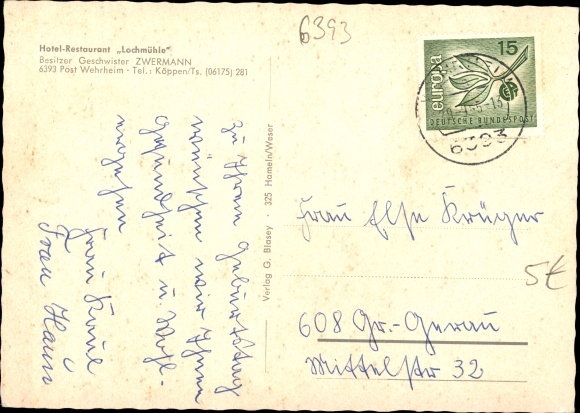 6393
Hotel-Restaurant „Lochmühle"
Besitzer Geschwister ZWERMANN
6393 Post Wehrheim · Tel.: Köppen/Ts. (06175) 281
europa
15
DEUTSCHE BUNDESPOST
6393
zu Ihrem Geburtstag
wünschen wir Ihnen
Gesundheit u. Wohl-
ergehen
Frau Kaul
Frau Hain
Verlag G. Blasey · 325 Hameln/Weser
Frau Else Krüger
5€
608 Gr.-Gerau
Mittelstr 32